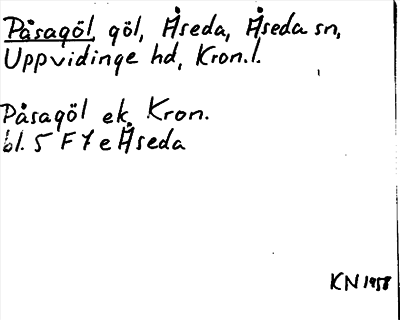 Påsagöl, göl, Åseda, Åseda sn,
Uppvidinge hd, Kron.l.
Påsagöl ek. Kron.
bl. 5 F 7 e Åseda
KN 1958